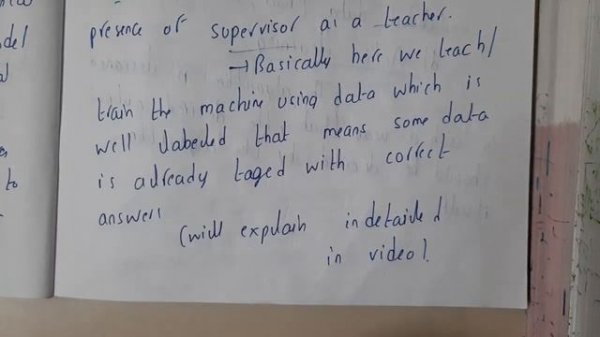 presence of supervisor as a teacher.
→ Basically here we teach/
train the machine using data which is
well labeled that means some data
is already taged with correct
answer
(will explain in detailed
in video).
del
to